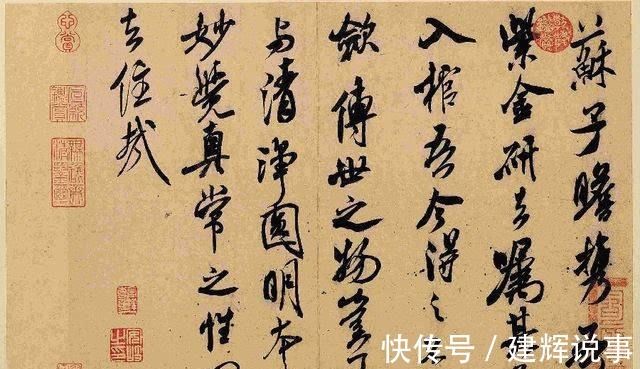 蘇子瞻携
紫金研去嘱其
入棺吾今得之
歛傳世之物豈
与清净圓明本
妙覺真常之性
去住哉
快传号 / 建辉说事